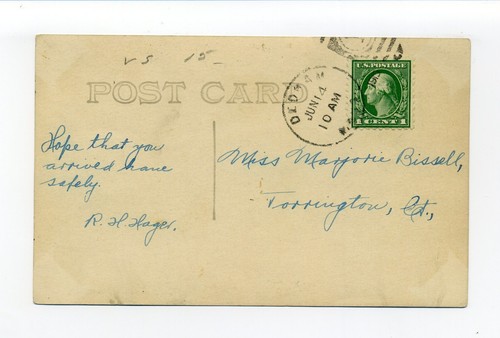 VS 15-
POST CARD
U.S. POSTAGE
1 CENT 1
DEDHAM
JUN 14
10 AM
Hope that you
arrived home
safely.
R. H. Hager.
Miss Marjorie Bissell,
Torrington, Ct.,